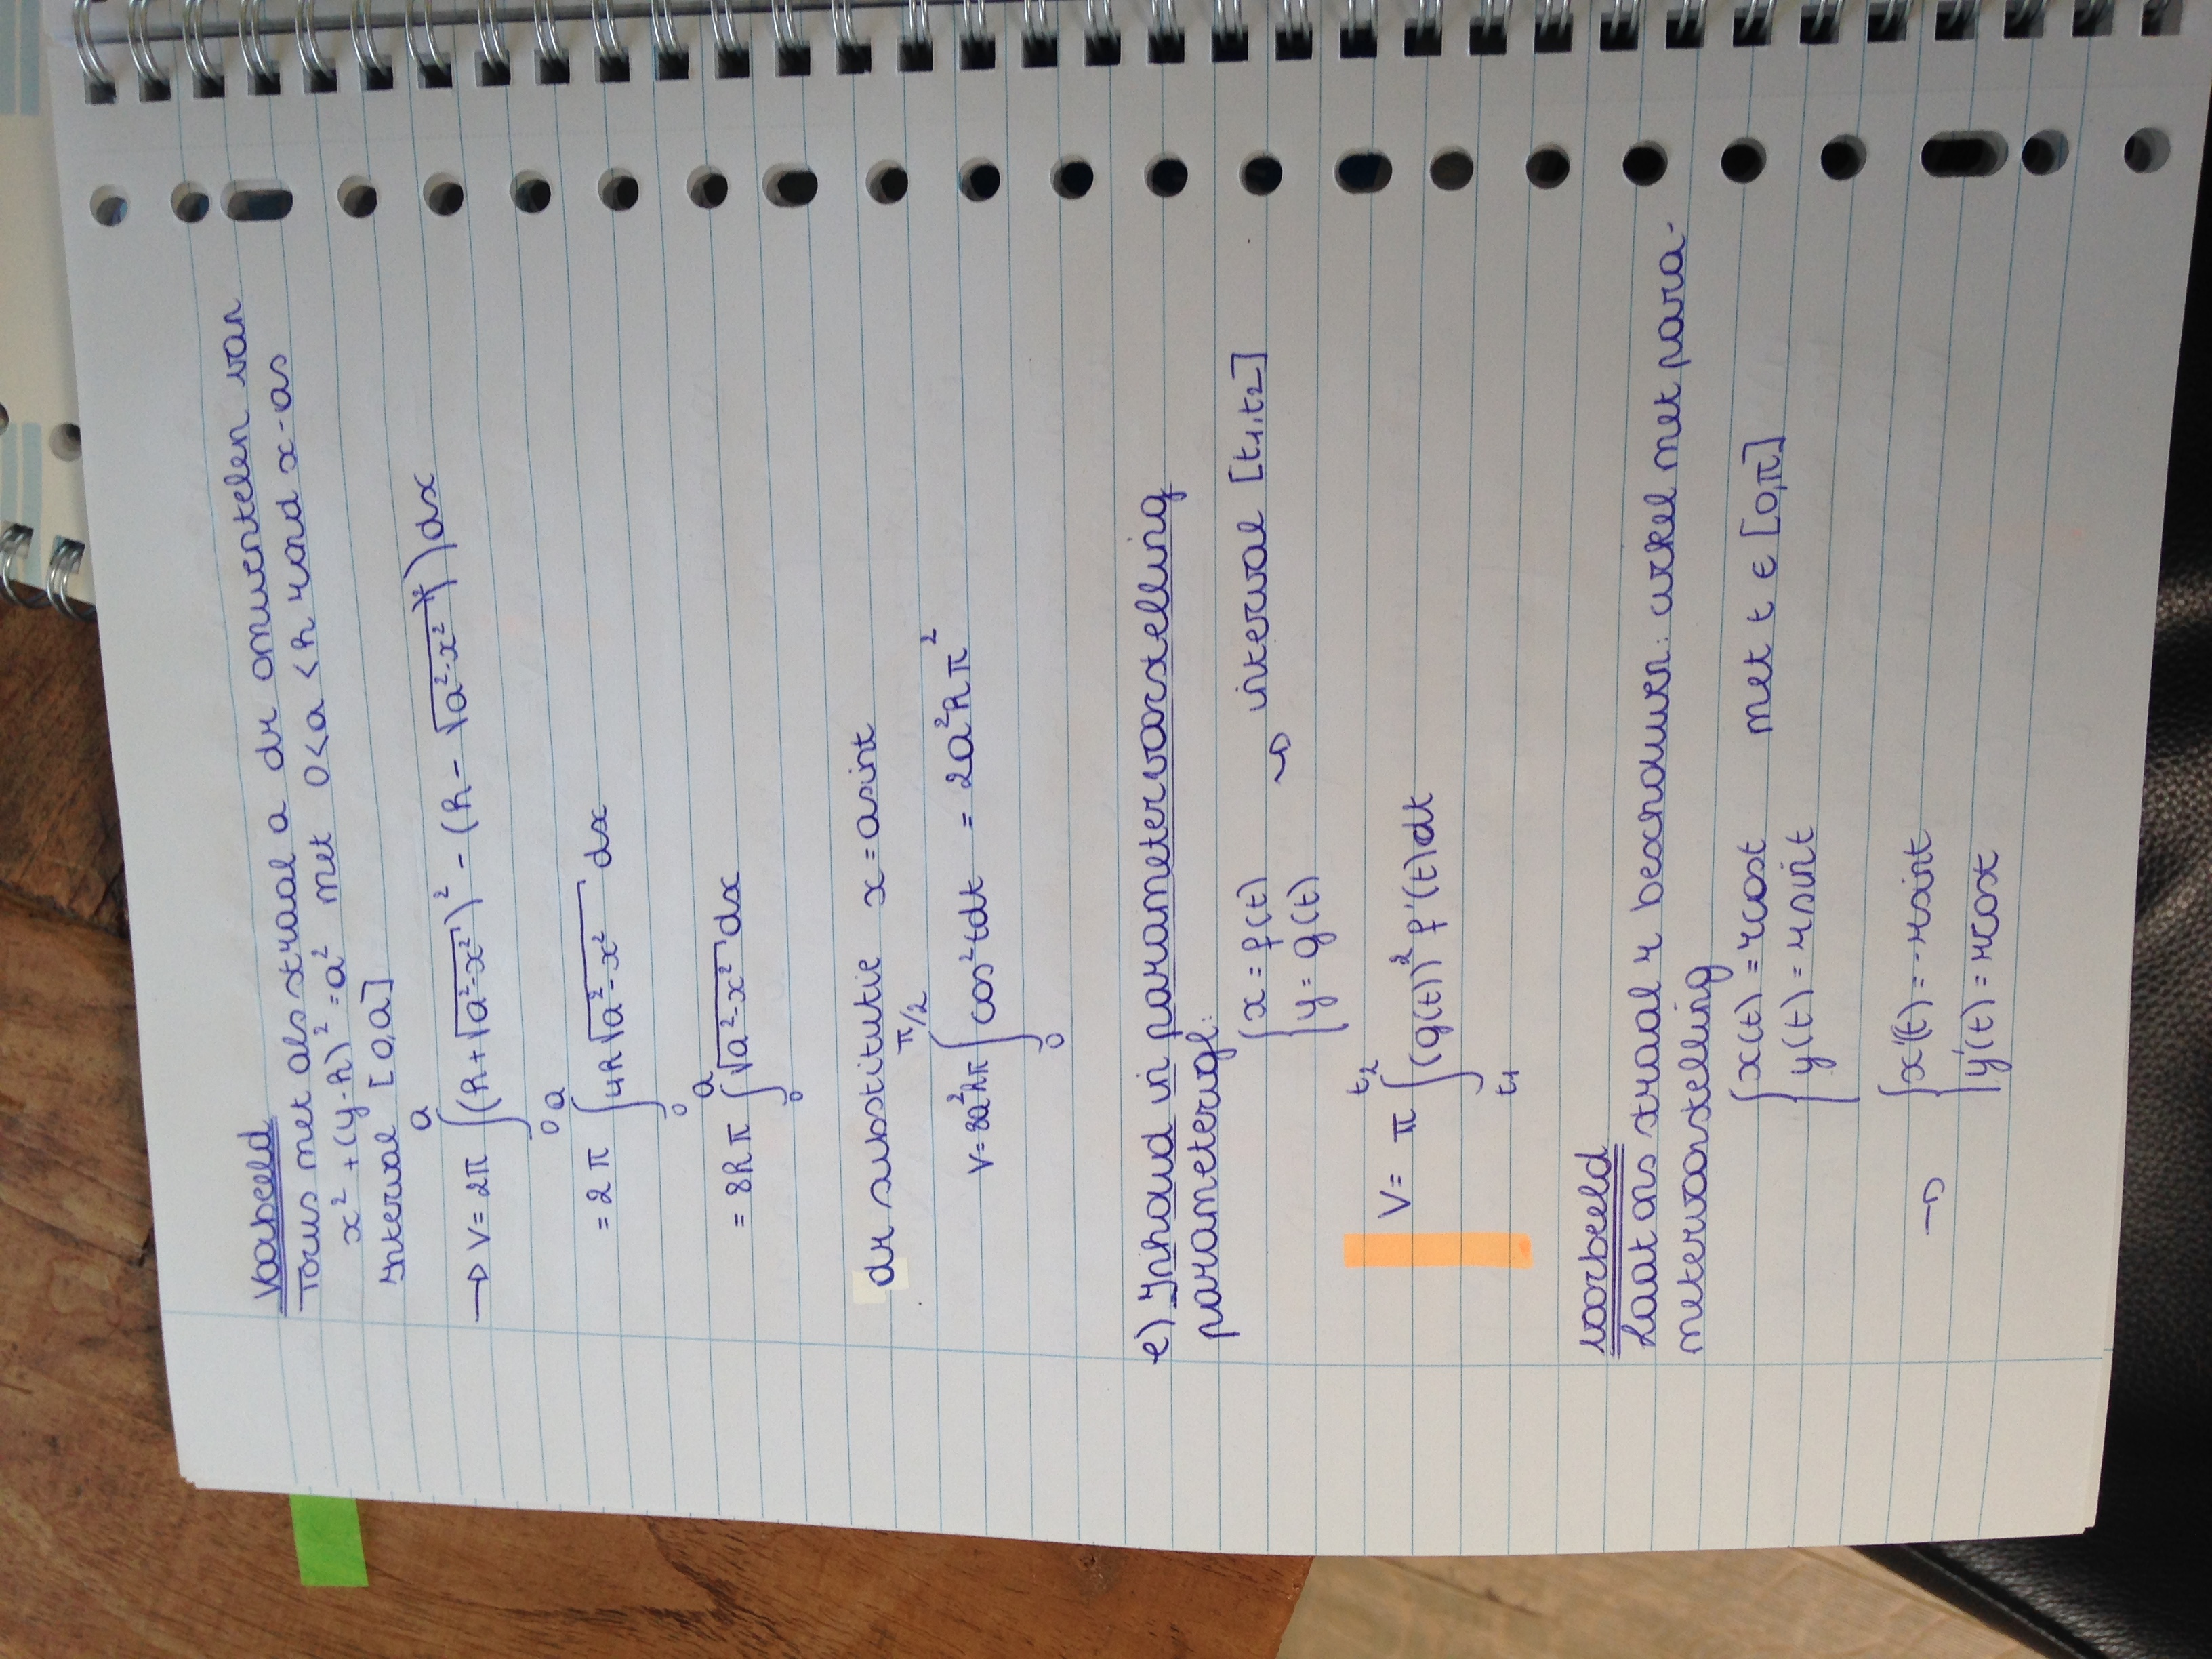 Voorbeeld
Torus met als straal a dr omwentelen van
x² + (y-h)² = a² met 0<a<h rond x-as
Interval [0,a]
→ V = 2π ∫₀ᵃ ((h+√(a²-x²))² - (h-√(a²-x²))²) dx
= 2π ∫₀ᵃ 4h√(a²-x²) dx
= 8hπ ∫₀ᵃ √(a²-x²) dx
dr substitutie x = asint
V = 8a²hπ ∫₀^(π/2) cos²tdt = 2a²hπ²
e) Inhoud in parametervoorstelling
parametervgl:
{ x = f(t)
y = g(t) → interval [t1,t2]
V = π ∫_(t1)^(t2) (g(t))² f'(t)dt
voorbeeld
Laat ons straal r beschouwen: cirkel met para-
metervoorstelling
{ x(t) = rcost met t ∈ [0,π]
y(t) = rsint
→ { x'(t) = -rsint
y'(t) = rcost